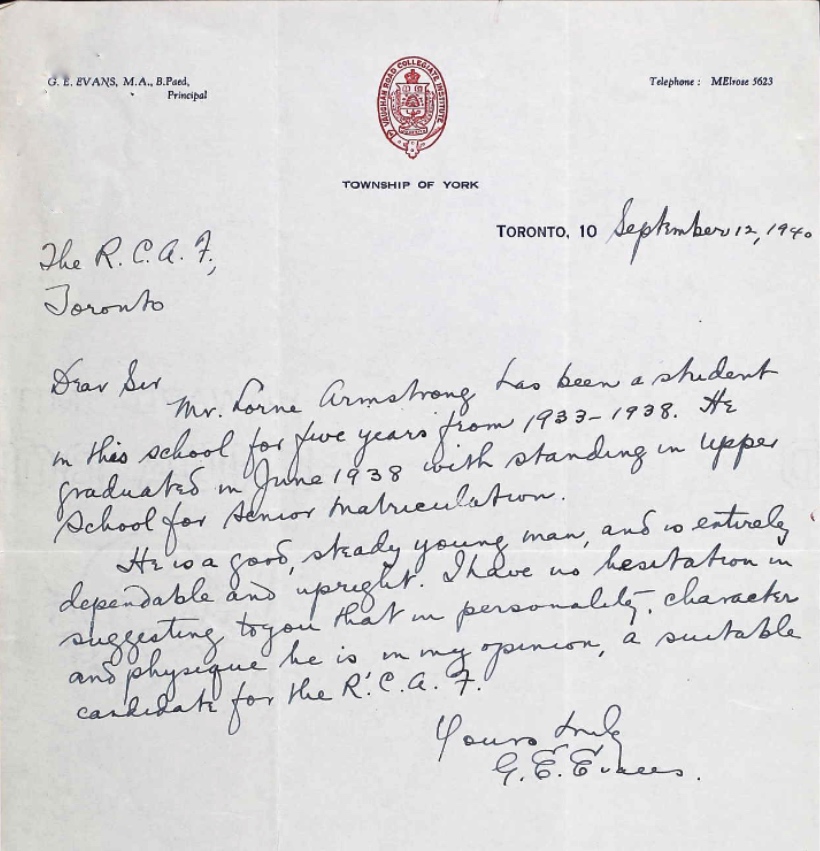 G. E. EVANS, M.A., B.Paed,
Principal
VAUGHAN ROAD COLLEGIATE INSTITUTE
Telephone : MElrose 5623
TOWNSHIP OF YORK
TORONTO, 10 September 12, 1940
The R. C. A. F,
Toronto
Dear Sir
Mr. Lorne Armstrong has been a student
in this school for five years from 1933-1938. He
graduated in June 1938 with standing in Upper
School for Senior Matriculation.
He is a good, steady young man, and is entirely
dependable and upright. I have no hesitation in
suggesting to you that in personality, character
and physique he is in my opinion, a suitable
candidate for the R. C. A. F.
Yours truly
G. E. Evans.